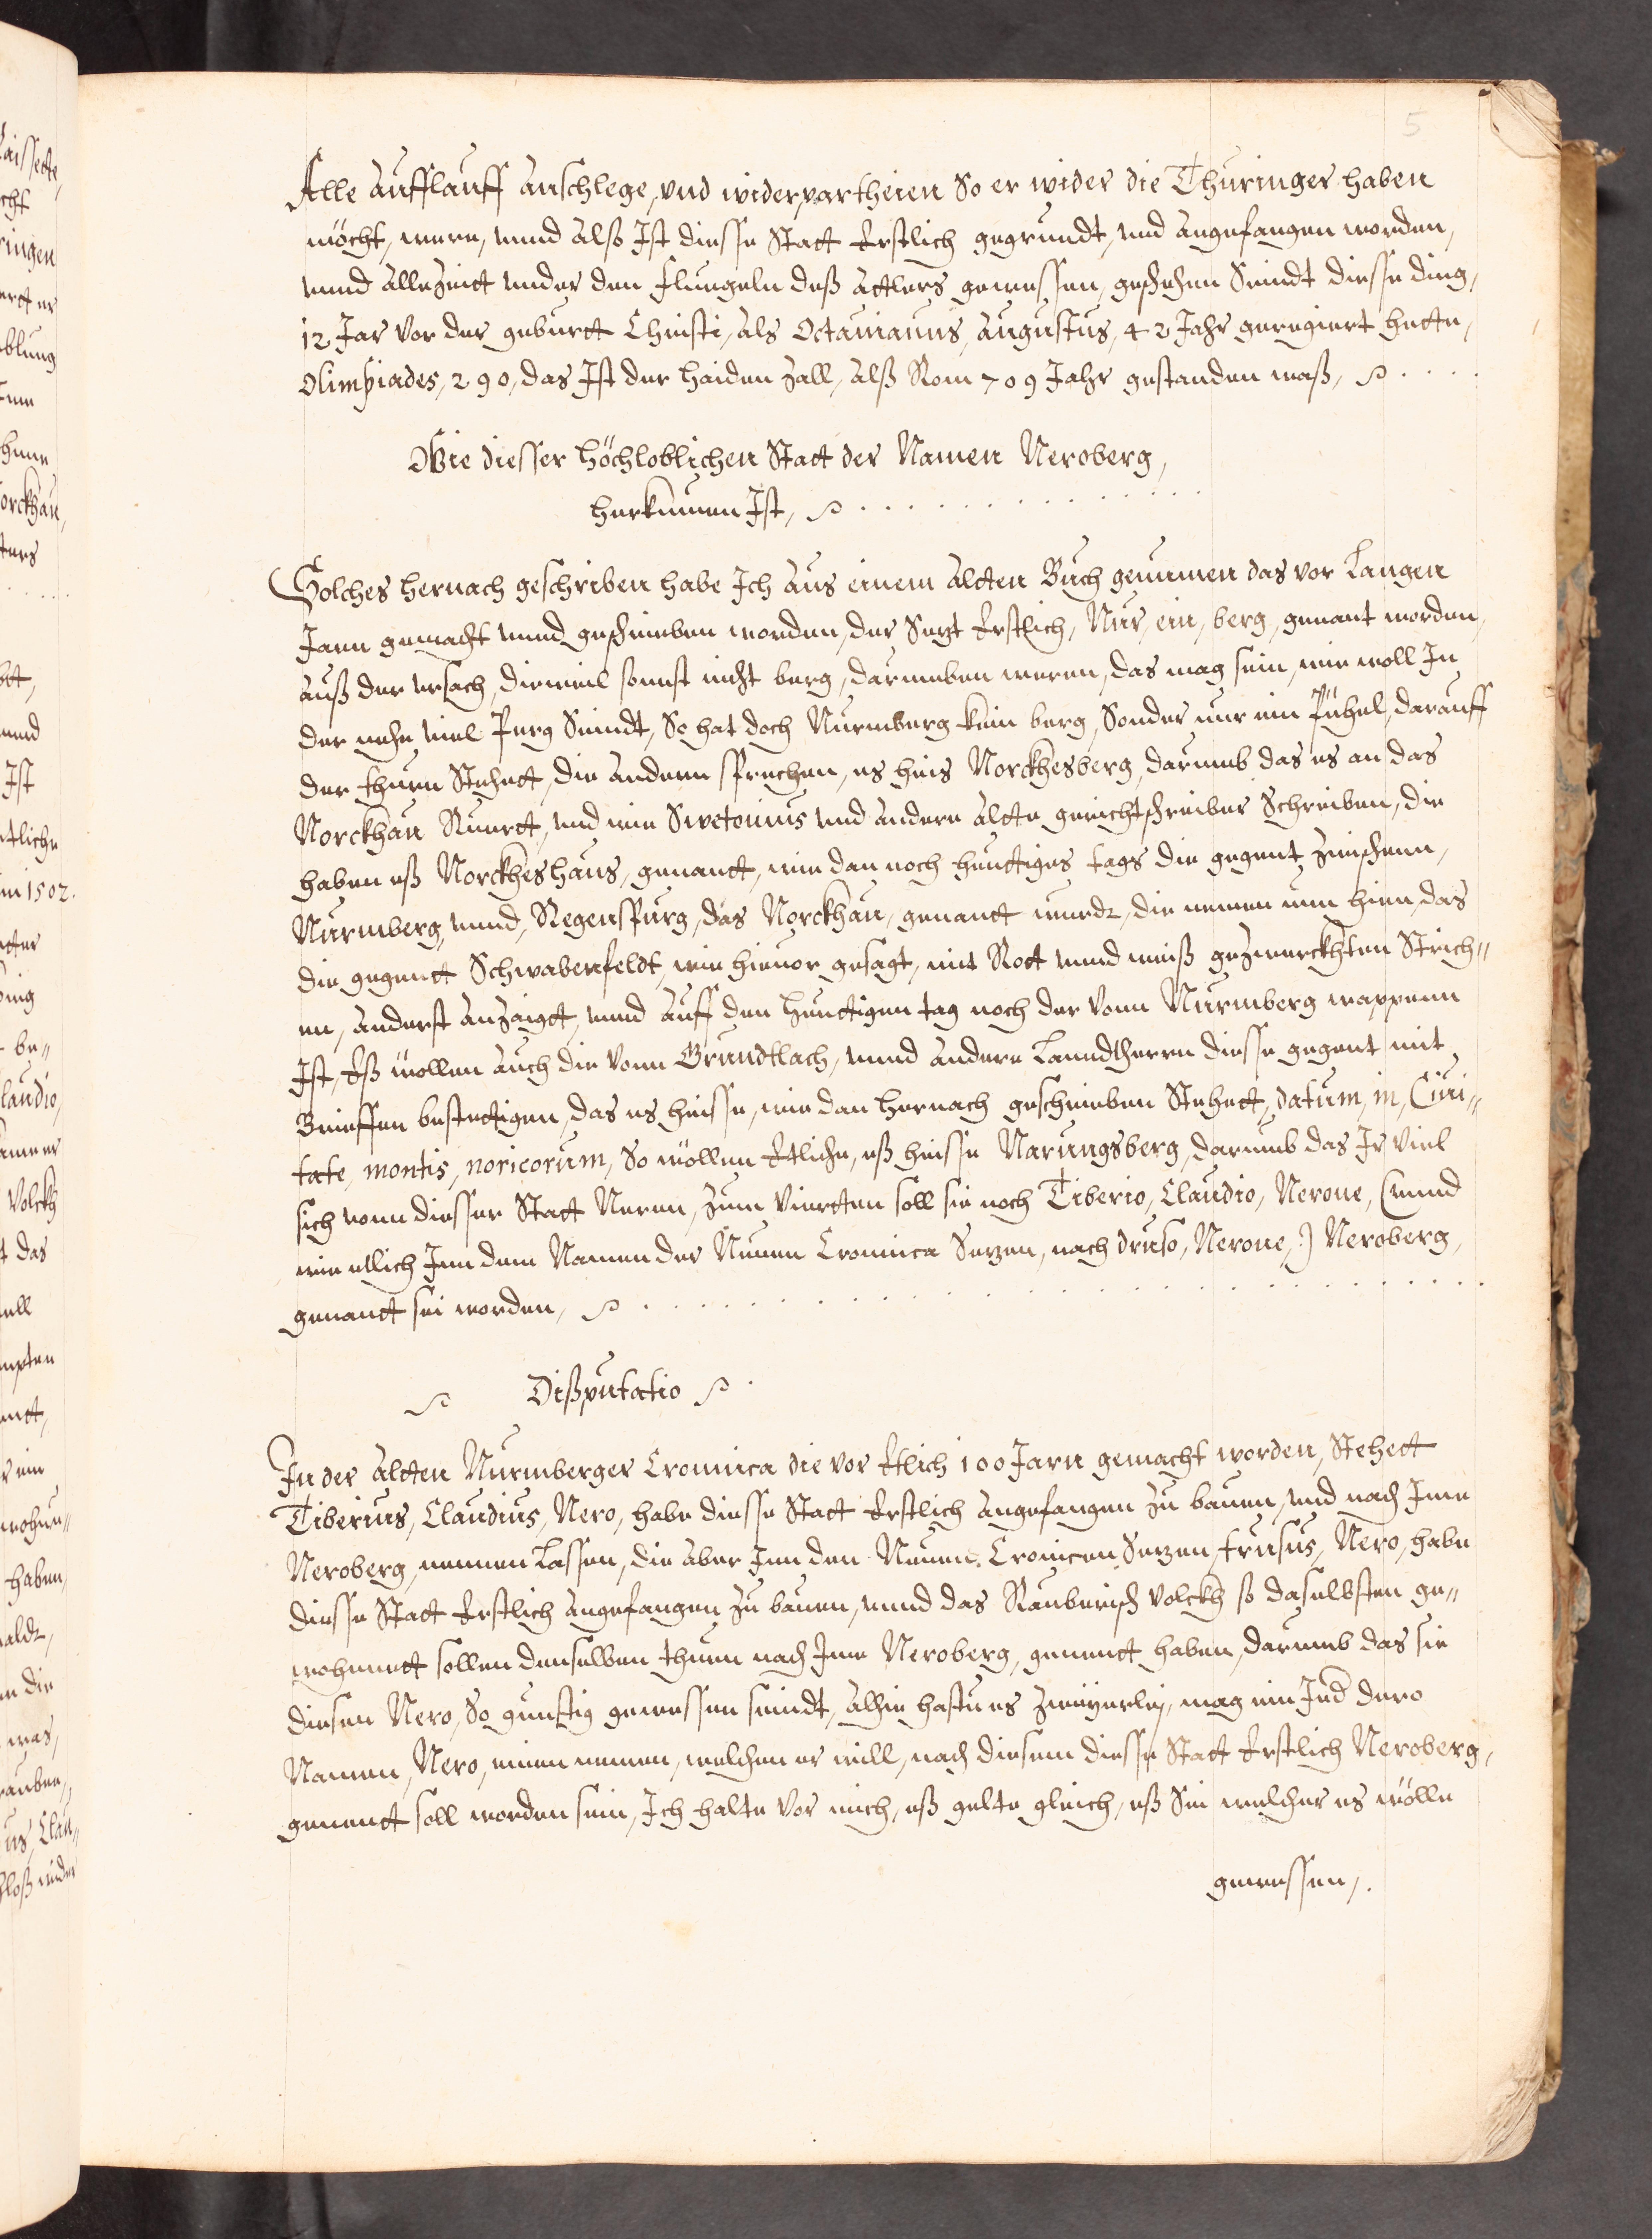 5
Alle Aufflauff Anschlege, vnd widerpartheien So er wider die Thuringer haben
möcht, were, vnnd Also Ist diesse Statt Erstlich gegrundt, vnd Angefangen worden,
vnnd Allezeitt vnder den flungeln deß Attlers gewessen, geschehen Seindt diesse ding,
12 Jar vor der geburtt Christi, Als Octauianus, Augustus, 42 Jahr geregiert hette,
Olimpiades, 290, das Ist der haiden zall, Alß Rom 709 Jahr gestanden waß,
Wie diesser Höchloblichen Statt der Namen Neroberg,
herkumen Ist,
Solches hernach geschriben habe Ich Aus einem Altten Buch genumen das vor Langen
Jarn gemacht vnnd geschrieben worden, der Sezt Erstlich, Nur, ein, berg, genant worden,
Auß der vrsach, dieweil sonnst nicht berg, darneben weren, das mag sein, wie woll In
der nehe viel Perg Seindt, So hat doch Nurmberg kein berg, Sonder nur ein Pühel, darauff
der thurn Stehett, die Andern sprechen, es heis Norckhesberg, darumb das es an das
Norckhau Ruertt, vnd wie Swetonius vnd Andere Altte geschichtschreiber Schreiben, die
haben eß Norckheshaus, genantt, wie dan noch heuttiges tags die gegent zwischenn,
Nurmberg, vnnd, Regenspurg, das Norckhau, genantt wurdt, die nemen nun hien, das
die gegentt Schwabenfeldt, wie hieuor gesagt, mit Rott vnnd weiß gezwerckhten Strich„
en, Anderst Anzaigtt, vnnd Auff den heuttigen tag noch der vonn Nurmberg wappenn
Ist, Eß wöllen Auch die vonn Grundtlach, vnnd Andere Lanndtherrn diesse gegent mit
Brieffen bestettigen, das es hiesse, wie dan hernach geschrieben Stehett, datum, in, Ciui„
tate, montis, noricorum, So wöllen Etliche, eß hiesse Narungsberg, darumb das Ir viel
sich vonn diesser Statt Neren, Zum Vierdten soll sie noch Tiberio, Claudio, Nerone, (vnnd
wie etlich Inn dem Namen der Neuen Cronnica Sezen, nach druso, Nerone,) Neroberg,
genantt sei worden,
Dißputatio
In der Altten Nurmberger Cronnica die vor Etlich 100 Jarn gemacht worden, Stehett
Tiberius, Claudius, Nero, habe diesse Statt Erstlich Angefangen zu bauen, vnd nach Ime
Neroberg, nennen Lassen, die Aber Inn den Neuen Cronicen Sezen, trusus, Nero, habe
diesse Statt Erstlich Angefangen zu bauen, vnnd das Rauberisch volckh so daselbsten ge„
wohnnett sollen denselben thurn nach Ime Neroberg, genentt haben, darumb das sie
diesem Nero, So gunstig gewessen seindt, Alhie hastu es zweyerley, mag ein Jed dero
Namen, Nero, einen nemen, welchen er will, nach diesem diesse Statt Erstlich Neroberg,
genentt soll worden sein, Ich halte vor mich, eß gelte gleich, eß Sei welcher es wölle
gewessen,.